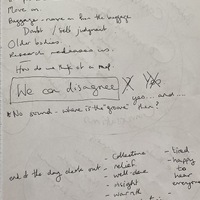 Move on
Baggage - name on the baggage
Doubt / Self judgment
Older bodies.
Research
How do we think of a map.
We can disagree
yes... and....
* No sound - where is the "groove" then?
end of the day dash out
- Collective
- relief
- well-done
- insight
- warmth
- tired
- happy
to
hear
everyone